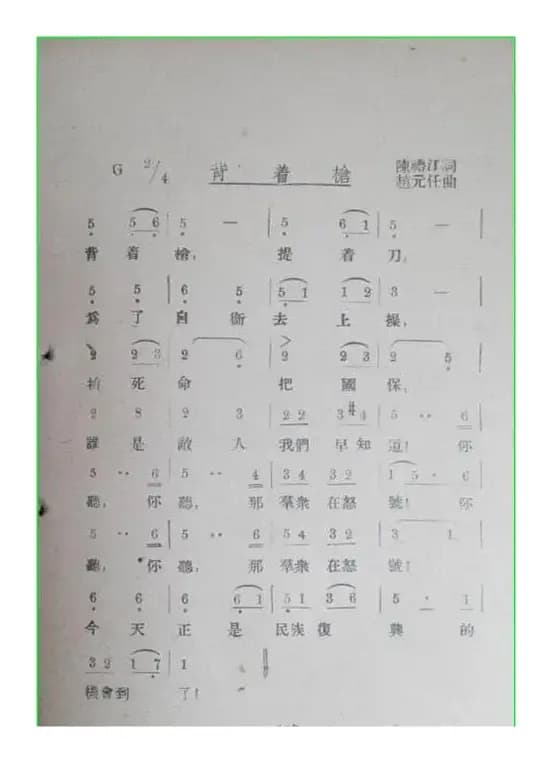 G 2/4 背着槍 陳禧江詞
趙元任曲
5 5 6 5 — 5 6 1 5 —
背着槍， 提着刀，
5 5 6 5 5 1 1 2 3 —
爲了自衞去上操，
2 2 3 2 6 2 2 3 2 5
拚死命 把國保，
2 3 2 3 2 2 3 #4 5 · · 6
誰是敵人我們早知道！你
5 · · 6 5 · · 4 3 4 3 2 1 5 · 6
聽，你聽，那羣衆在怒號！你
5 · · 6 5 · · 6 5 4 3 2 3 1
聽，你聽，那羣衆在怒號！
6 6 6 6 1 5 1 3 6 5 · 1
今天正是民族復興的
3 2 1 7 1
機會到了！